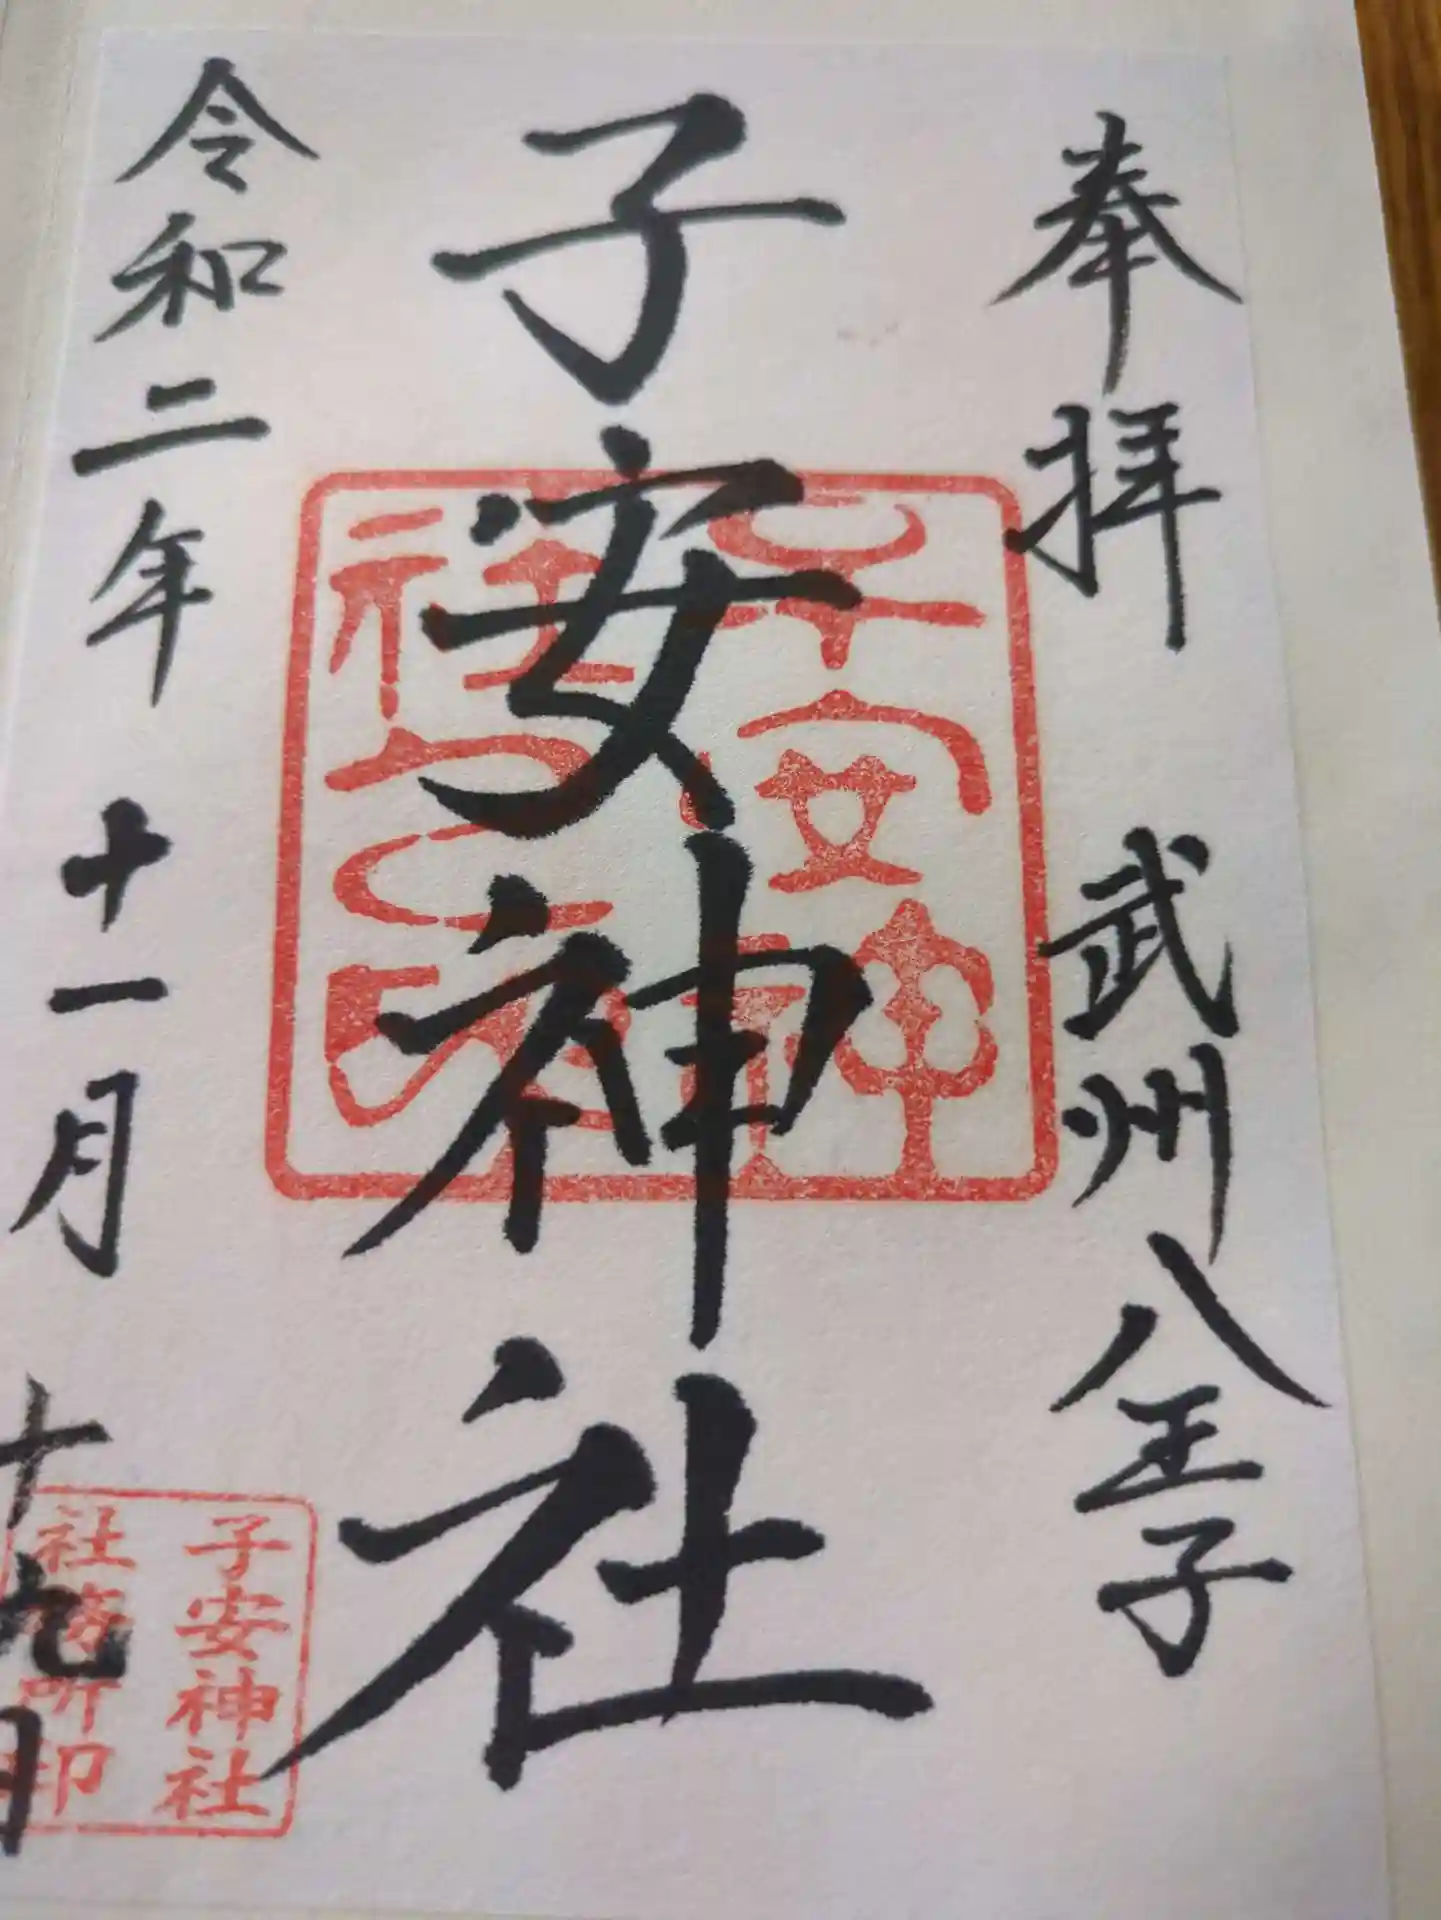 奉拝 武州八王子
子安神社
令和二年 十一月 十九日
子安神社
社務所印
子安神
社之印